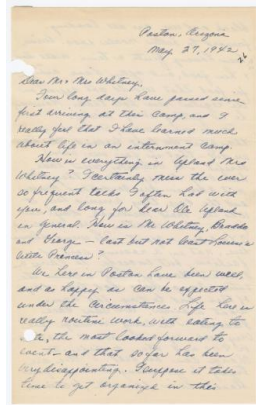 Poston, Arizona
May 27, 1942
Dear Mr. & Mrs Whitney,
Four long days have passed since
first arriving at this camp, and I
really feel that I have learned much
about life in an internment camp.
How is everything in Upland Mrs
Whitney? I certainly miss the ever
so frequent talks I often had with
you, and long for dear Ole Upland
in general. How is Mr. Whitney,
and George – last but not least
little
We here in Poston have been well,
and as happy as can be expected
under the circumstances. Life here is
really routine work, with eating to
the most looked forward to
event – and that so far has been
very disappointing. I suppose it takes
time to get organized in this